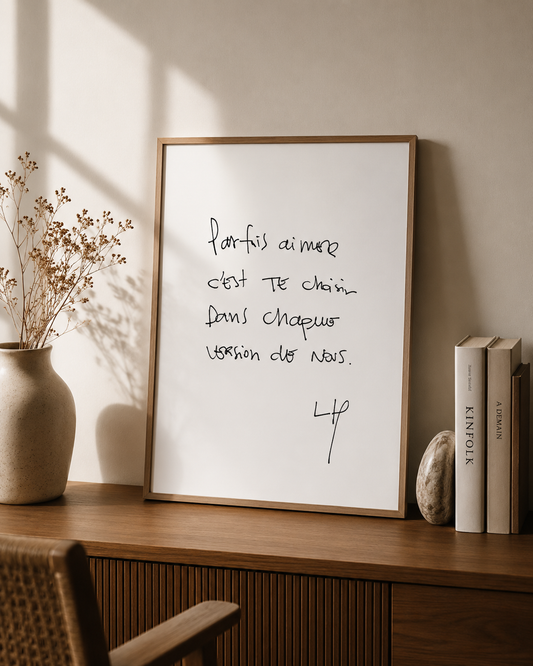 Parfois aimer
c'est TE choisir
Dans chaque
version de nous.
LH
KINFOLK
A DEMAIN